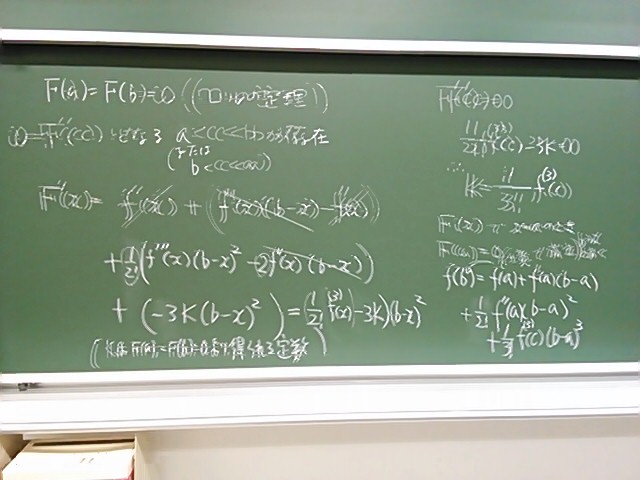 F(a) = F(b) = 0 (ロルの定理)
0 = F'(c) となる a < c < b が存在
(または b < c < a)
F'(x) = f'(x) + (f''(x)(b-x) - f'(x))
+ 1/2! (f'''(x)(b-x)² - 2f''(x)(b-x))
+ (-3K(b-x)²) = (1/2! f⁽³⁾(x) - 3K)(b-x)²
F(a) = F(b) = 0 より得られる定数
F'(c) = 0
1/2! f⁽³⁾(c) - 3K = 0
∴ K = 1/3! f⁽³⁾(c)
F(x) で x = a のとき
F(a) = 0
f(b) = f(a) + f'(a)(b-a)
+ 1/2! f''(a)(b-a)²
+ 1/3! f⁽³⁾(c)(b-a)³